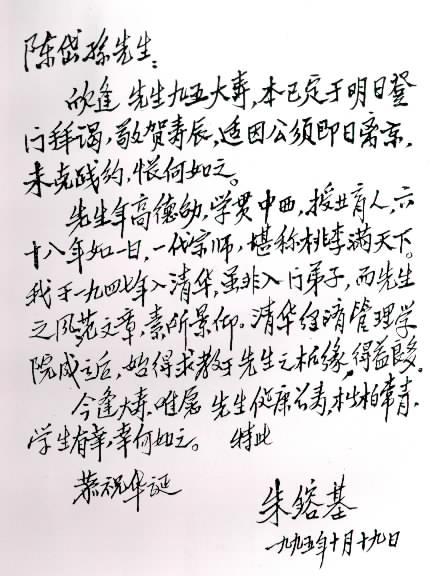 陈岱孙先生：
欣逢 先生九五大寿，本已定于明日登
门拜谒，敬贺寿辰，适因公须即日离京，
未克践约，怅何如之。
先生年高德劭，学贯中西，授业育人，六
十八年如一日，一代宗师，堪称桃李满天下。
我于一九四七年入清华，虽非入门弟子，而先生
之风范文章，素所景仰。清华经济管理学
院成立后，始得求教于先生之机缘，得益良多。
今逢大寿，唯愿 先生健康长寿，松柏常青，
学生有幸，幸何如之。 特此
恭祝华诞
朱镕基
一九九五年十月十九日